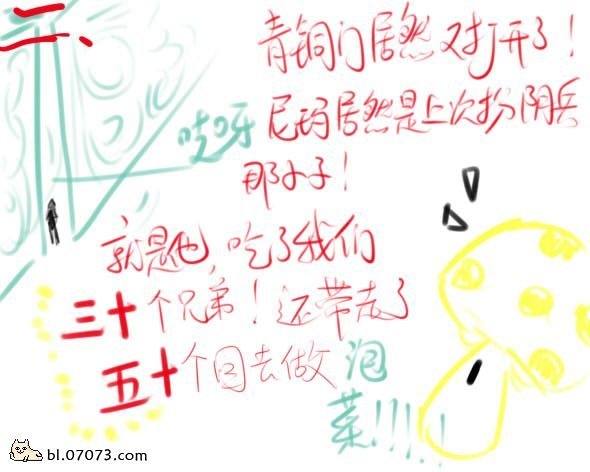 二、
青铜门居然又打开了！
哎呀
尼玛居然是上次扮阴兵
那小子！
就是他，吃了我们
三十个兄弟！还带走了
五十个回去做泡
菜！！！！
bl.07073.com